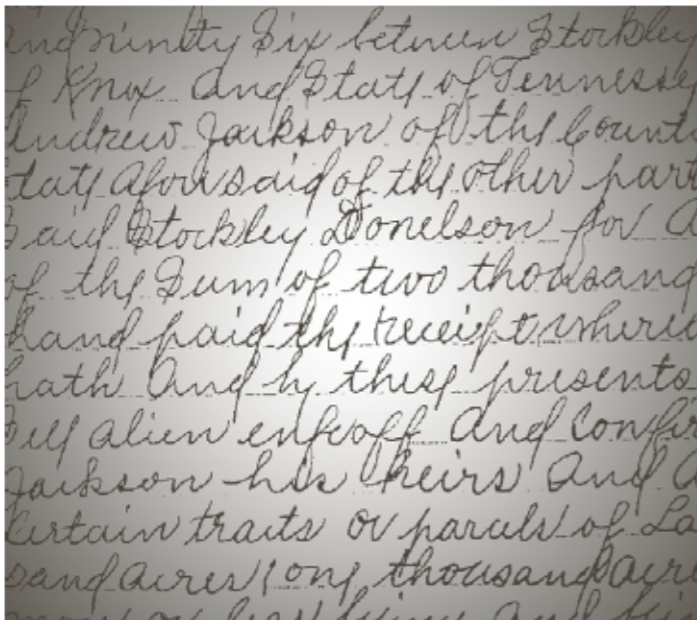 and ninity Six between Stockley
of Knox and State of Tennesse
Andrew Jackson of the Count
tate aforesaid of the other part
Said Stockley Donelson for a
of the Sum of two thousand
hand paid the receipt where
hath and by these presents
Sell alien enfeoff and Confir
Jackson his heirs and a
Certain traits or parcels of La
sand acres one thousand acre
more or less lying and bein